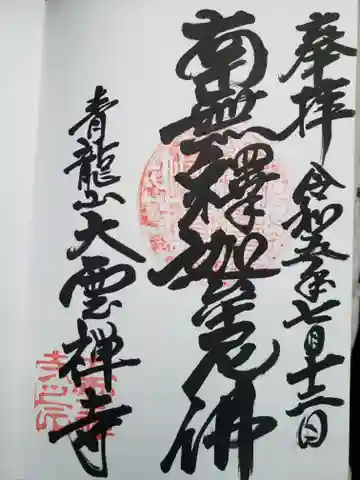 奉拝
令和五年七月十二日
南無釋迦牟尼佛
青龍山大雲禅寺